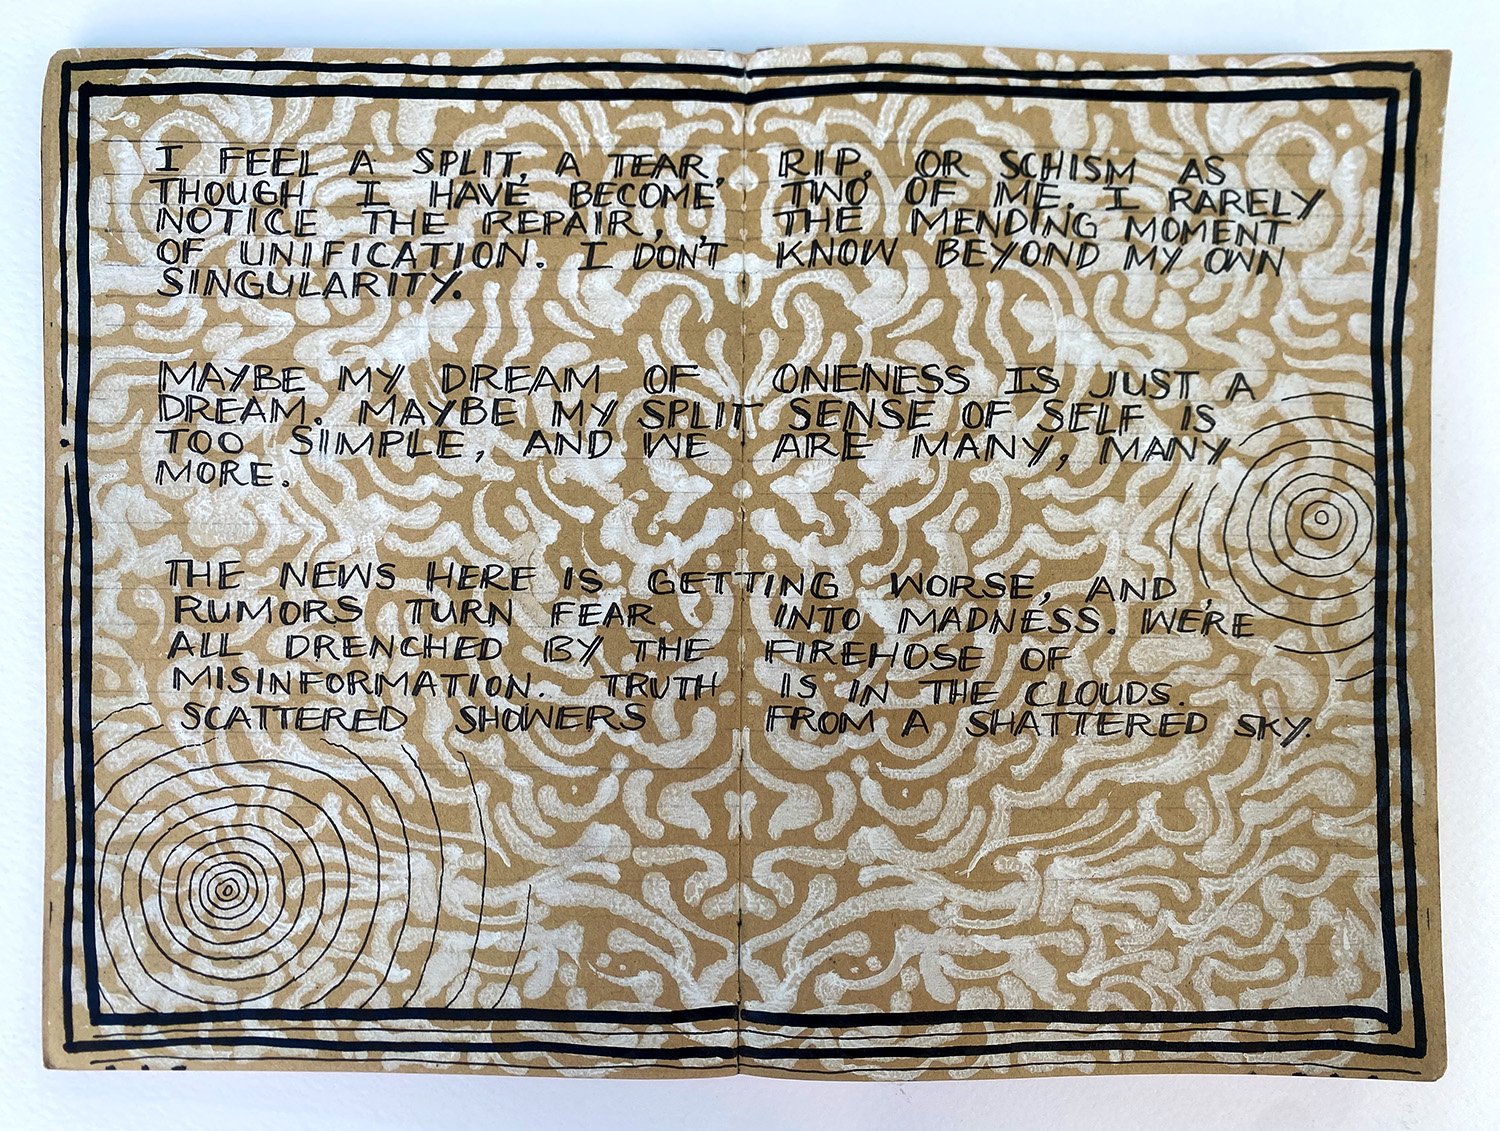 I FEEL A SPLIT, A TEAR, RIP, OR SCHISM AS
THOUGH I HAVE BECOME TWO OF ME. I RARELY
NOTICE THE REPAIR, THE MENDING MOMENT
OF UNIFICATION. I DON'T KNOW BEYOND MY OWN
SINGULARITY.
MAYBE MY DREAM OF ONENESS IS JUST A
DREAM. MAYBE MY SPLIT SENSE OF SELF IS
TOO SIMPLE, AND WE ARE MANY, MANY
MORE.
THE NEWS HERE IS GETTING WORSE, AND,
RUMORS TURN FEAR INTO MADNESS. WE'RE
ALL DRENCHED BY THE FIREHOSE OF
MISINFORMATION. TRUTH IS IN THE CLOUDS.
SCATTERED SHOWERS FROM A SHATTERED SKY.